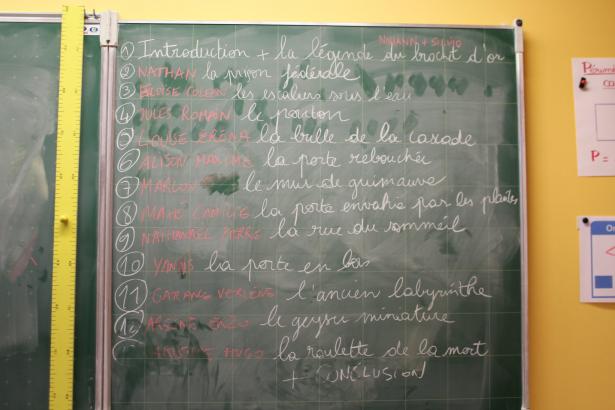 NINIANN + SILVIO
① Introduction + la légende du brochet d'or
② NATHAN la prison fédérale
③ ELOISE COLEEN les escaliers sous l'eau
④ JULES ROMAIN le ponton
⑤ LOUISE ERENA la bulle de la cascade
⑥ ALISON MAXIME la porte rebouchée
⑦ MARLON le mur de guimauve
⑧ MAIE CAMILLE la porte envahie par les plantes
⑨ NATHANAEL PIERRE la rue du sommeil
⑩ YANNIS la porte en bas
⑪ GARANCE VERLENE l'ancien labyrinthe
⑫ ARSENE ENZO le geyser miniature
HUGO la roulette de la mort
+ CONCLUSION
P =